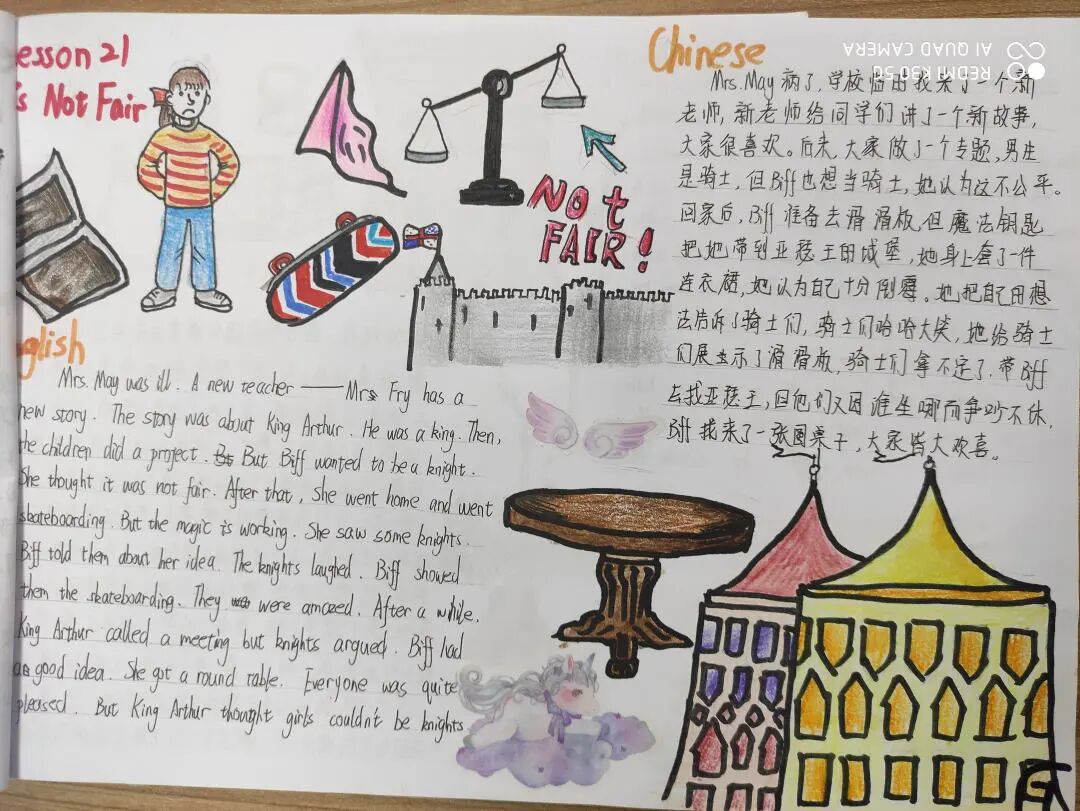 esson 21
's Not Fair
Not
FAIR!
Chinese
REDMI K30 5G
AI QUAD CAMERA
Mrs. May 病了,学校临时找来了一个新
老师,新老师给同学们讲了一个新故事,
大家很喜欢。后来,大家做了一个专题,男生
是骑士,但Biff也想当骑士,她认为这不公平。
回家后,Biff 准备去滑滑板,但魔法钥匙
把她带到亚瑟王的城堡,她身上套了一件
连衣裙,她认为自己十分倒霉。她把自己的想
法告诉了骑士们,骑士们哈哈大笑,她给骑士
们展示了滑滑板,骑士们拿不定了,带Biff
去找亚瑟王,但他们又因谁坐哪而争吵不休,
Biff 找来了一张圆桌子,大家皆大欢喜。
nglish
Mrs. May was ill. A new teacher —— Mrs Fry has a
new story. The story was about King Arthur. He was a king. Then,
the children did a project. But Biff wanted to be a knight.
She thought it was not fair. After that, she went home and went
skateboarding. But the magic is working. She saw some knights.
Biff told them about her idea. The knights laughed. Biff showed
them the skateboarding. They were amazed. After a while,
King Arthur called a meeting but knights argued. Biff had
a good idea. She got a round table. Everyone was quite
pleased. But King Arthur thought girls couldn't be knights